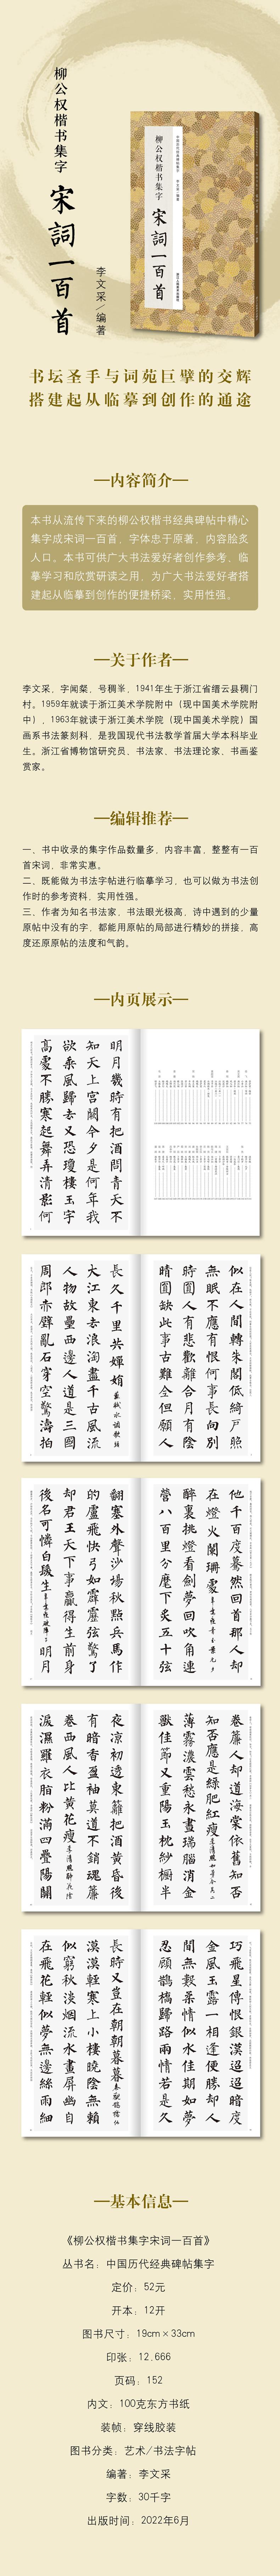 柳公权楷书集字
宋詞一百首
李文采/编著
柳公权楷书集字
宋詞一百首
书坛圣手与词苑巨擘的交辉
搭建起从临摹到创作的通途
内容简介
本书从流传下来的柳公权楷书经典碑帖中精心
集字成宋词一百首，字体忠于原著，内容脍炙
人口。本书可供广大书法爱好者创作参考、临
摹学习和欣赏研读之用，为广大书法爱好者搭
建起从临摹到创作的便捷桥梁，实用性强。
关于作者
李文采，字闻粲，号稠半，1941年生于浙江省缙云县稠门
村。1959年就读于浙江美术学院附中（现中国美术学院附
中），1963年就读于浙江美术学院（现中国美术学院）国
画系书法篆刻科，是我国现代书法教学首届大学本科毕业
生。浙江省博物馆研究员，书法家、书法理论家、书画鉴
赏家。
编辑推荐
一、书中收录的集字作品数量多，内容丰富，整整有一百
首宋词，非常实惠。
二、既能做为书法字帖进行临摹学习，也可以做为书法创
作时的参考资料，实用性强。
三、作者为知名书法家，书法眼光极高，诗中遇到的少量
原帖中没有的字，都能用原帖的局部进行精妙的拼接，高
度还原原帖的法度和气韵。
内页展示
明月幾時有把酒問青天不
知天上宮闕今夕是何年我
欲乘風歸去又恐瓊樓玉宇
高處不勝寒起舞弄清影何
似在人間轉朱閣低綺户照
無眠不應有恨何事長向別
時圓人有悲歡離合月有陰
晴圓缺此事古難全但願人
長久千里共嬋娟 蘇軾水調歌頭
大江東去浪淘盡千古風流
人物故壘西邊人道是三國
周郎赤壁亂石穿空驚濤拍
他千百度驀然回首那人却
在燈火闌珊處 辛棄疾青玉案元夕
醉裏挑燈看劍夢回吹角連
營八百里分麾下炙五十弦
翻塞外聲沙場秋點兵馬作
的盧飛快弓如霹靂弦驚了
却君王天下事贏得生前身
後名可憐白髮生 辛棄疾破陣子 明月
卷簾人却道海棠依舊知否
知否應是綠肥紅瘦 李清照如夢令其二
薄霧濃雲愁永晝瑞腦消金
獸佳節又重陽玉枕紗櫥半
夜涼初透東籬把酒黃昏後
有暗香盈袖莫道不銷魂簾
卷西風人比黃花瘦 李清照醉花陰
淚濕羅衣脂粉滿四疊陽關
巧飛星傳恨銀漢迢迢暗度
金風玉露一相逢便勝却人
間無數柔情似水佳期如夢
忍顧鵲橋歸路兩情若是久
長時又豈在朝朝暮暮 秦觀鵲橋仙
漠漠輕寒上小樓曉陰無賴
似窮秋淡煙流水畫屏幽自
在飛花輕似夢無邊絲雨細
基本信息
《柳公权楷书集字宋词一百首》
丛书名：中国历代经典碑帖集字
定价：52元
开本：12开
图书尺寸：19cm×33cm
印张：12.666
页码：152
内文：100克东方书纸
装帧：穿线胶装
图书分类：艺术/书法字帖
编著：李文采
字数：30千字
出版时间：2022年6月